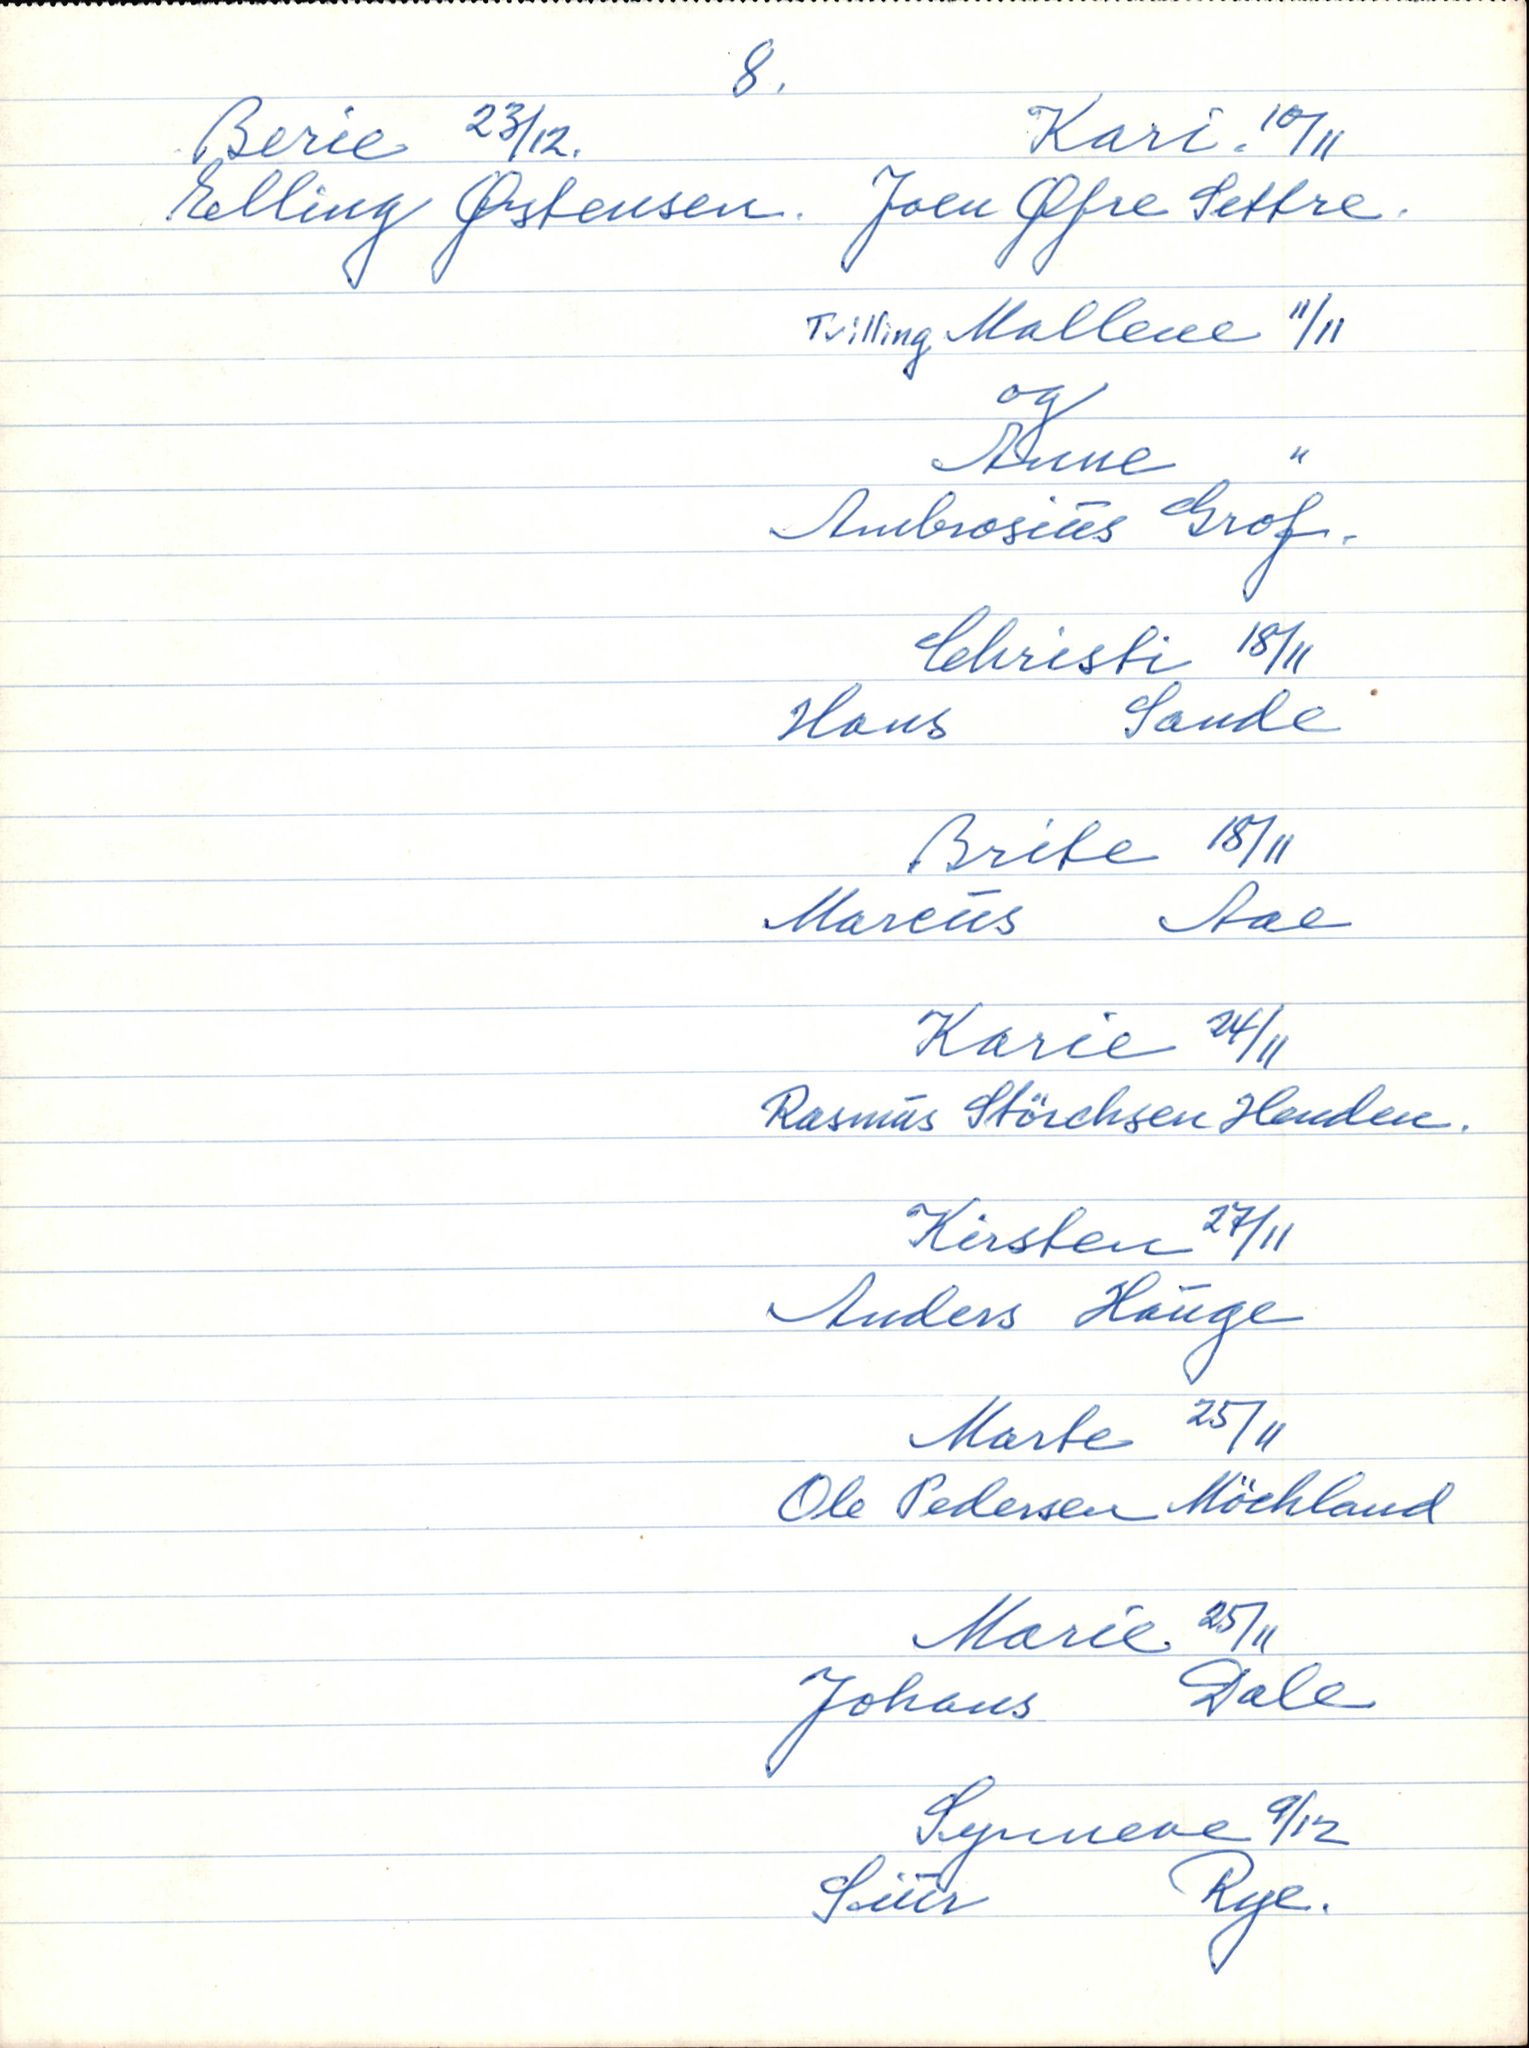 8.
Berie 23/12.
Elling Østensen.
Kari. 10/11
Joen Øfre Settre.
Tvilling Mallene 11/11
og
Anne "
Ambrosius Grof.
Christi 18/11
Hans Sande
Brite 18/11
Marcus Aae
Karie 24/11
Rasmus Störchsen Henden.
Kirsten 27/11
Anders Hauge
Marte 25/11
Ole Pedersen Möchland
Marie 25/11
Johans Dale
Synneve 9/12
Siur Rye.